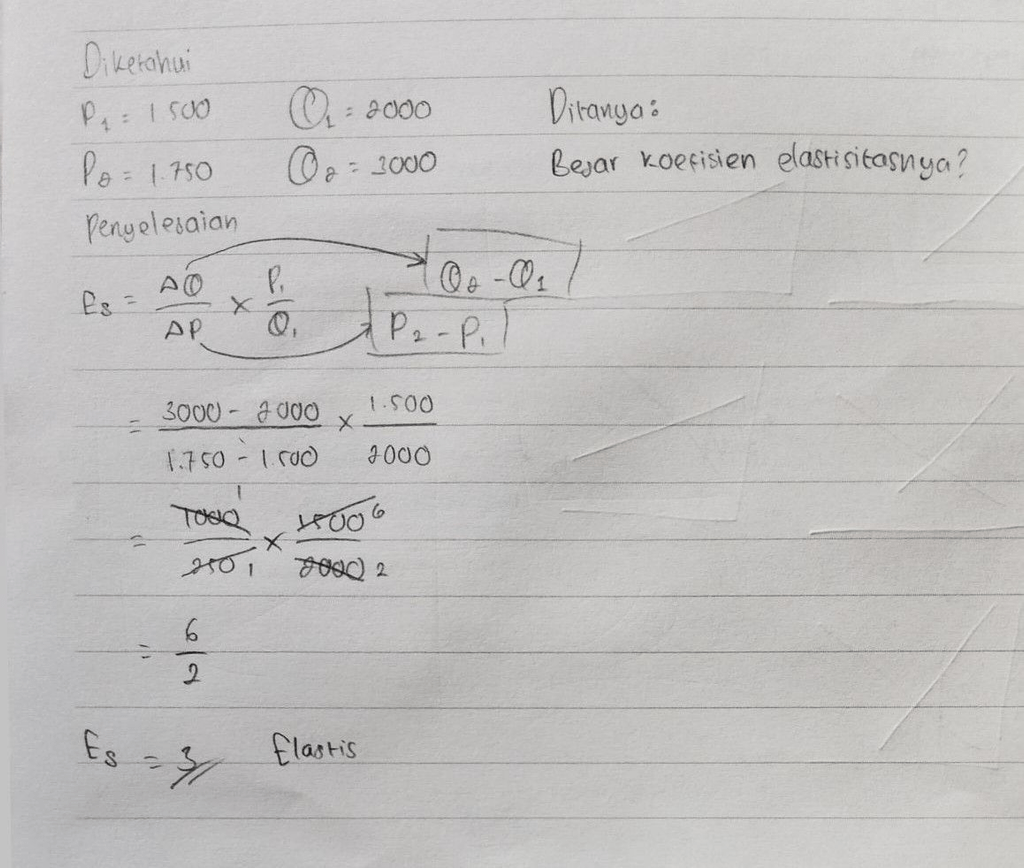 Diketahui
P1 = 1.500 Q1 = 2000 Ditanya:
P2 = 1.750 Q2 = 3000 Besar koefisien elastisitasnya?
Penyelesaian
Es = ΔQ/ΔP × P1/Q1 Q2 - Q1
P2 - P1
= 3000 - 2000 / 1.750 - 1.500 × 1.500/2000
= 1000 1 / 250 1 × 1500 6 / 2000 2
= 6/2
Es = 3// Elastis